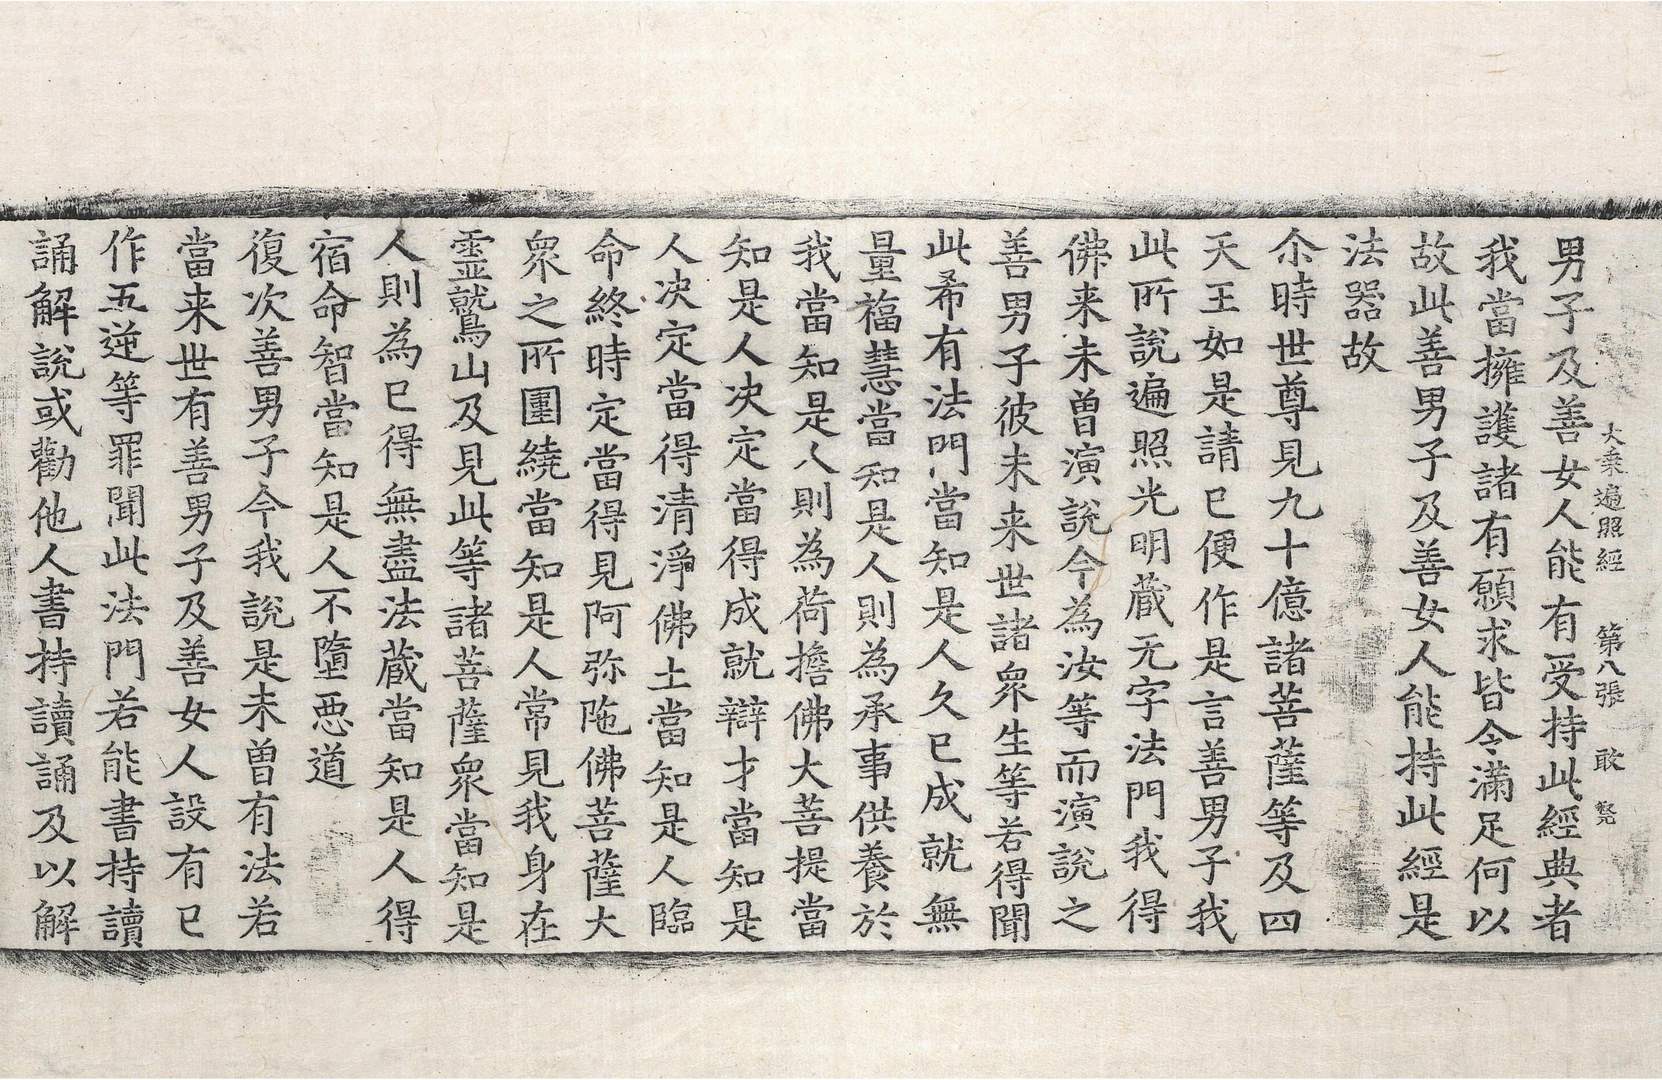 大乗遍照經 第八張 敢
男子及善女人能有受持此經典者
我當擁護諸有願求皆令滿足何以
故此善男子及善女人能持此經是
法器故
尒時世尊見九十億諸菩薩等及四
天王如是請已便作是言善男子我
此所說遍照光明藏无字法門我得
佛来未曾演說今為汝等而演說之
善男子彼未来世諸衆生等若得聞
此希有法門當知是人久已成就無
量福慧當知是人則為承事供養於
我當知是人則為荷擔佛大菩提當
知是人决定當得成就辯才當知是
人决定當得清淨佛土當知是人臨
命終時定當得見阿弥陁佛菩薩大
衆之所圍繞當知是人常見我身在
靈鷲山及見此等諸菩薩衆當知是
人則為已得無盡法藏當知是人得
宿命智當知是人不墮惡道
復次善男子今我說是未曾有法若
當来世有善男子及善女人設有已
作五逆等罪聞此法門若能書持讀
誦解說或勸他人書持讀誦及以解